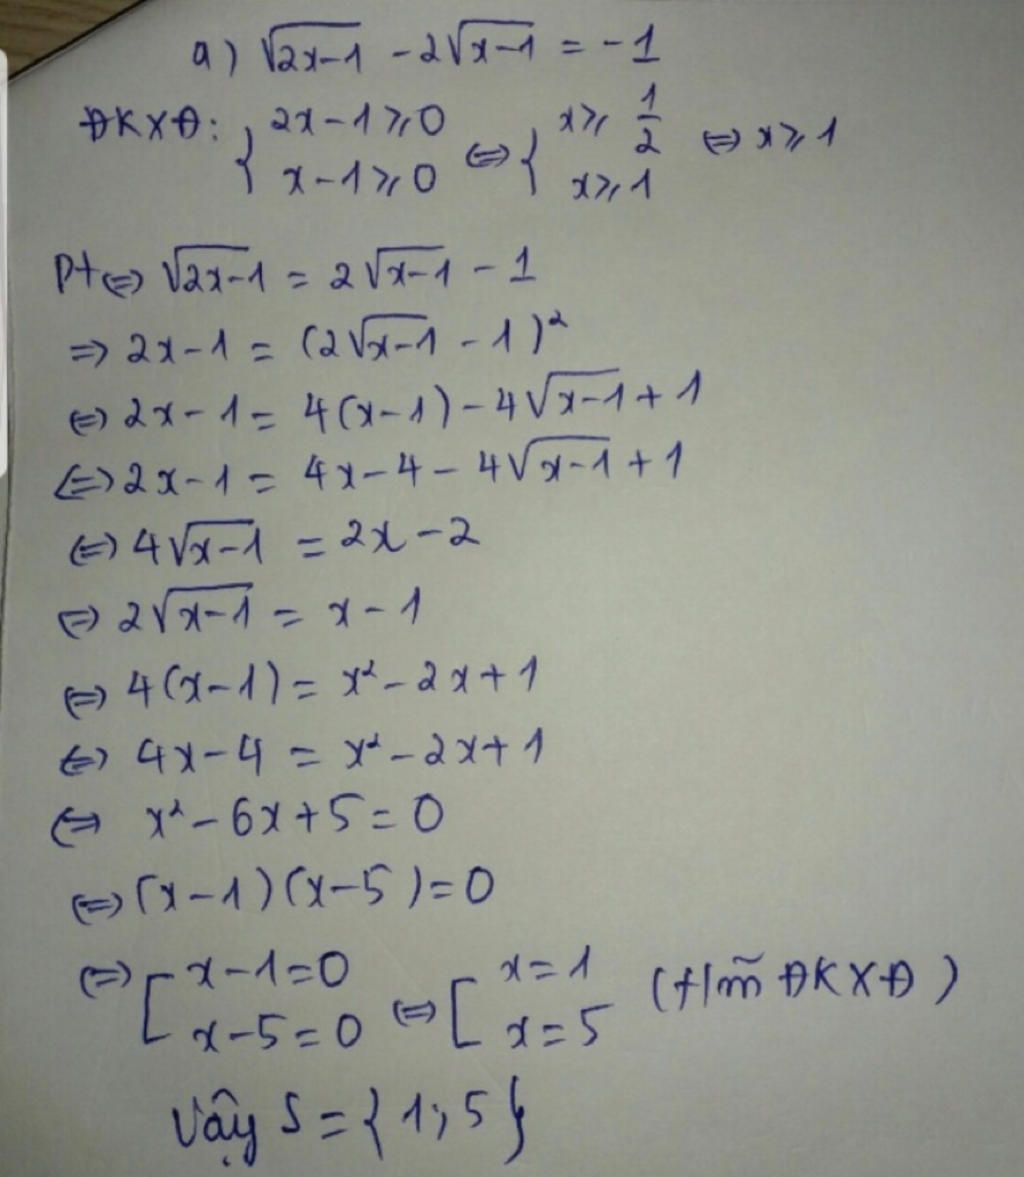 a) √(2x-1) - 2√(x-1) = -1
ĐKXĐ: { 2x-1 ≥ 0 ; x-1 ≥ 0 ⇔ { x ≥ 1/2 ; x ≥ 1 ⇔ x ≥ 1
Pt ⇔ √(2x-1) = 2√(x-1) - 1
⇒ 2x-1 = (2√(x-1) - 1)²
⇔ 2x-1 = 4(x-1) - 4√(x-1) + 1
⇔ 2x-1 = 4x-4 - 4√(x-1) + 1
⇔ 4√(x-1) = 2x-2
⇔ 2√(x-1) = x-1
⇔ 4(x-1) = x²-2x+1
⇔ 4x-4 = x²-2x+1
⇔ x²-6x+5=0
⇔ (x-1)(x-5)=0
⇔ [ x-1=0 ; x-5=0 ⇔ [ x=1 ; x=5 (t/m̃ ĐKXĐ)
Vậy S={1;5}